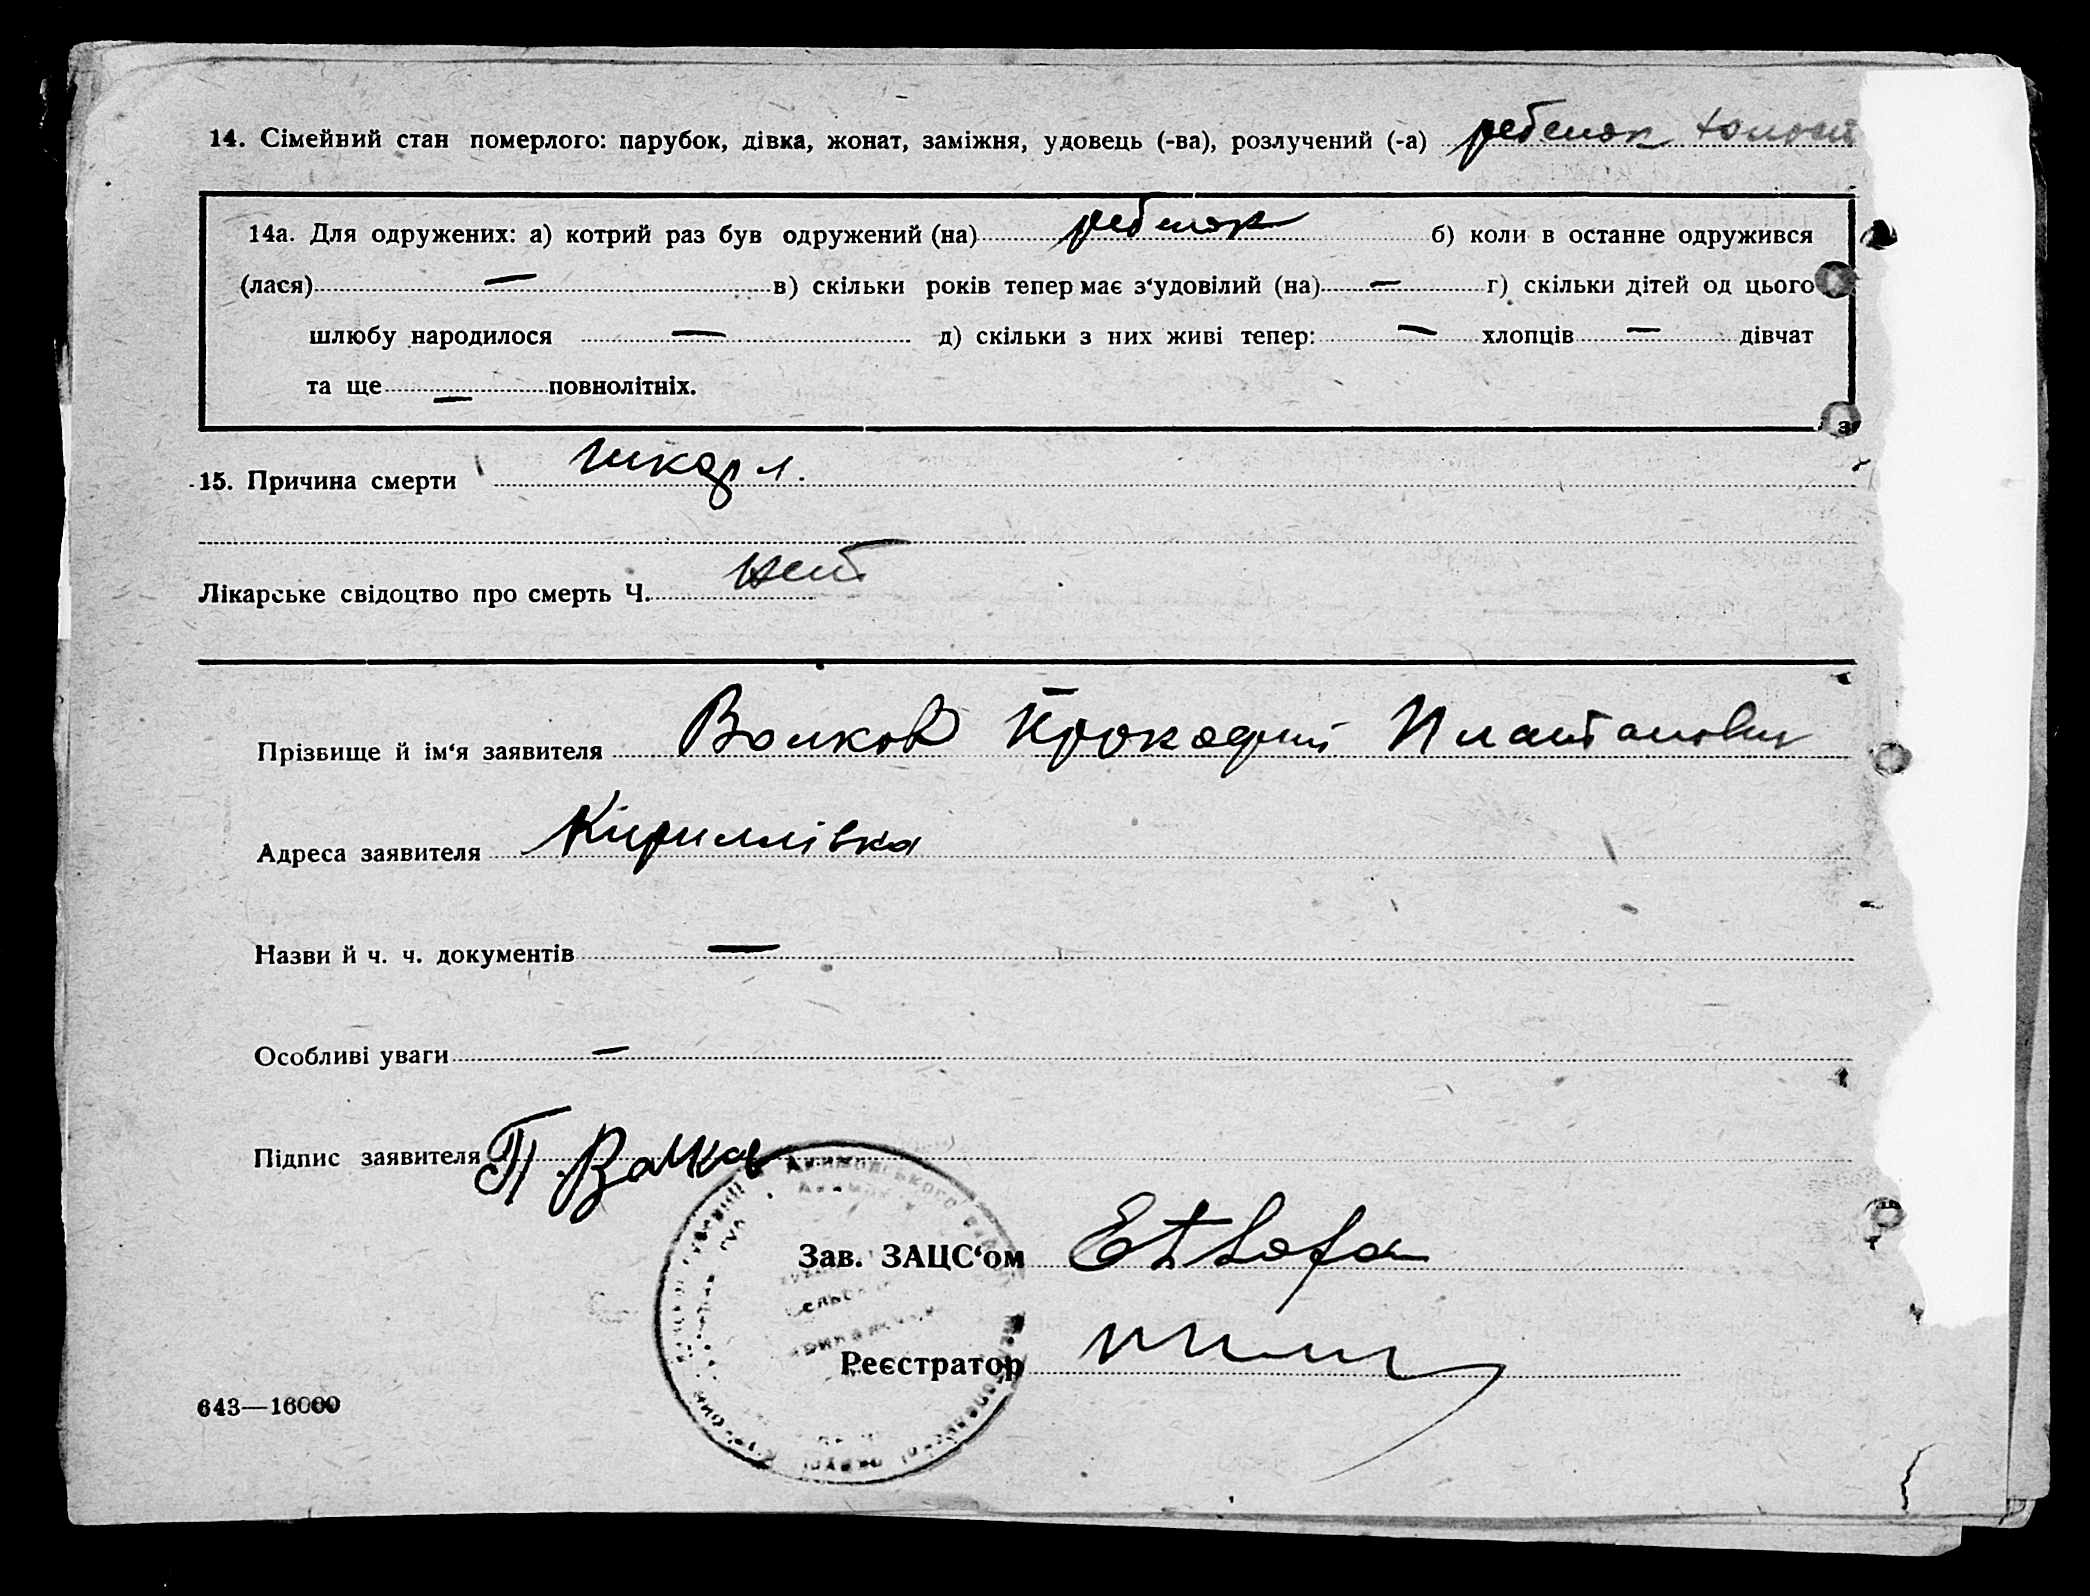 14. Сімейний стан померлого: парубок, дівка, жонат, заміжня, удовець (-ва), розлучений (-а) ребенок холост
14а. Для одружених: а) котрий раз був одружений (на) ребенок б) коли в останне одружився
(лася) — в) скільки років тепер має з‘удовілий (на) — г) скільки дітей од цього
шлюбу народилося — д) скільки з них живі тепер: — хлопців — дівчат
та ще — повнолітніх.
15. Причина смерти
Лікарське свідоцтво про смерть Ч. нет
Прізвище й ім‘я заявителя Волков Платонович
Адреса заявителя Кириллівка
Назви й ч. ч. документів —
Особливі уваги —
Підпис заявителя П Волков
Зав. ЗАЦС‘ом
Реєстратор
643—16000